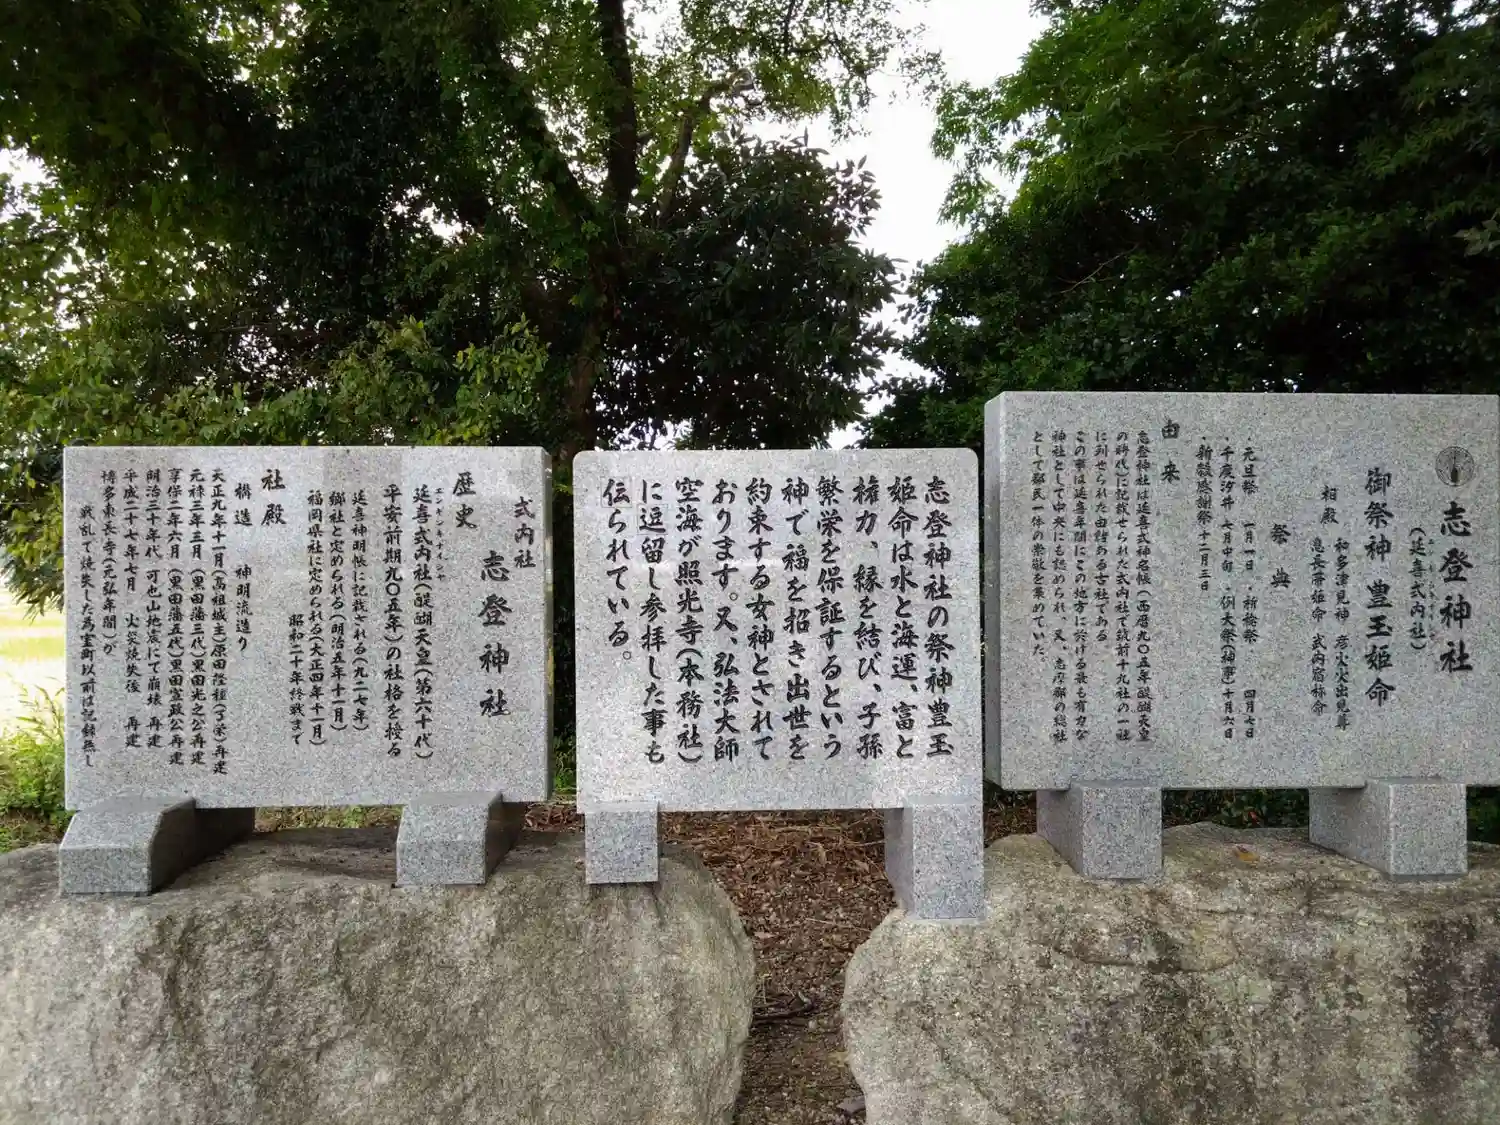 志登神社
(延喜式内社)
エンギシキナイシャ
御祭神 豊玉姫命
和多津見神 彦火火出見尊
相殿
息長帯姫命 武内宿祢命
祭典
・元旦祭 一月一日 ・祈祷祭 四月七日
・千度汐井 七月中旬 ・例大祭(神幸)十月六日
・新穀感謝祭 十二月三日
由来
志登神社は延喜式神名帳(西暦九〇五年醍醐天皇
の時代に記載せられた式内社で筑前十九社の一社
に列せられた由緒ある古社である
この事は延喜年間にこの地方に於ける最も有力な
神社として中央にも認められ、又、志摩郡の総社
として郡民一体の崇敬を集めていた。
志登神社の祭神豊玉
姫命は水と海運、富と
権力、縁を結び、子孫
繁栄を保証するという
神で福を招き出世を
約束する女神とされて
おります。又、弘法大師
空海が照光寺(本務社)
に逗留し参拝した事も
伝られている。
式内社
志登神社
歴史
エンギシキナイシャ
延喜式内社(醍醐天皇(第六十代)
平安前期九〇五年)の社格を授る
延喜神明帳に記載される(九二七年)
郷社と定められる(明治五年十一月)
福岡県社に定められる(大正四年十一月)
昭和二十年終戦まで
社殿
構造 神明流造り
天正九年十一月(高祖城主)原田隆種(了栄)再建
元禄三年三月(黒田藩三代)黒田光之公再建
享保二年六月(黒田藩五代)黒田宣政公再建
明治三十年代 可也山地震にて崩壊 再建
平成二十七年七月 火災焼失後 再建
博多東長寺(元弘年間)が
戦乱で焼失した為室町以前は記録無し